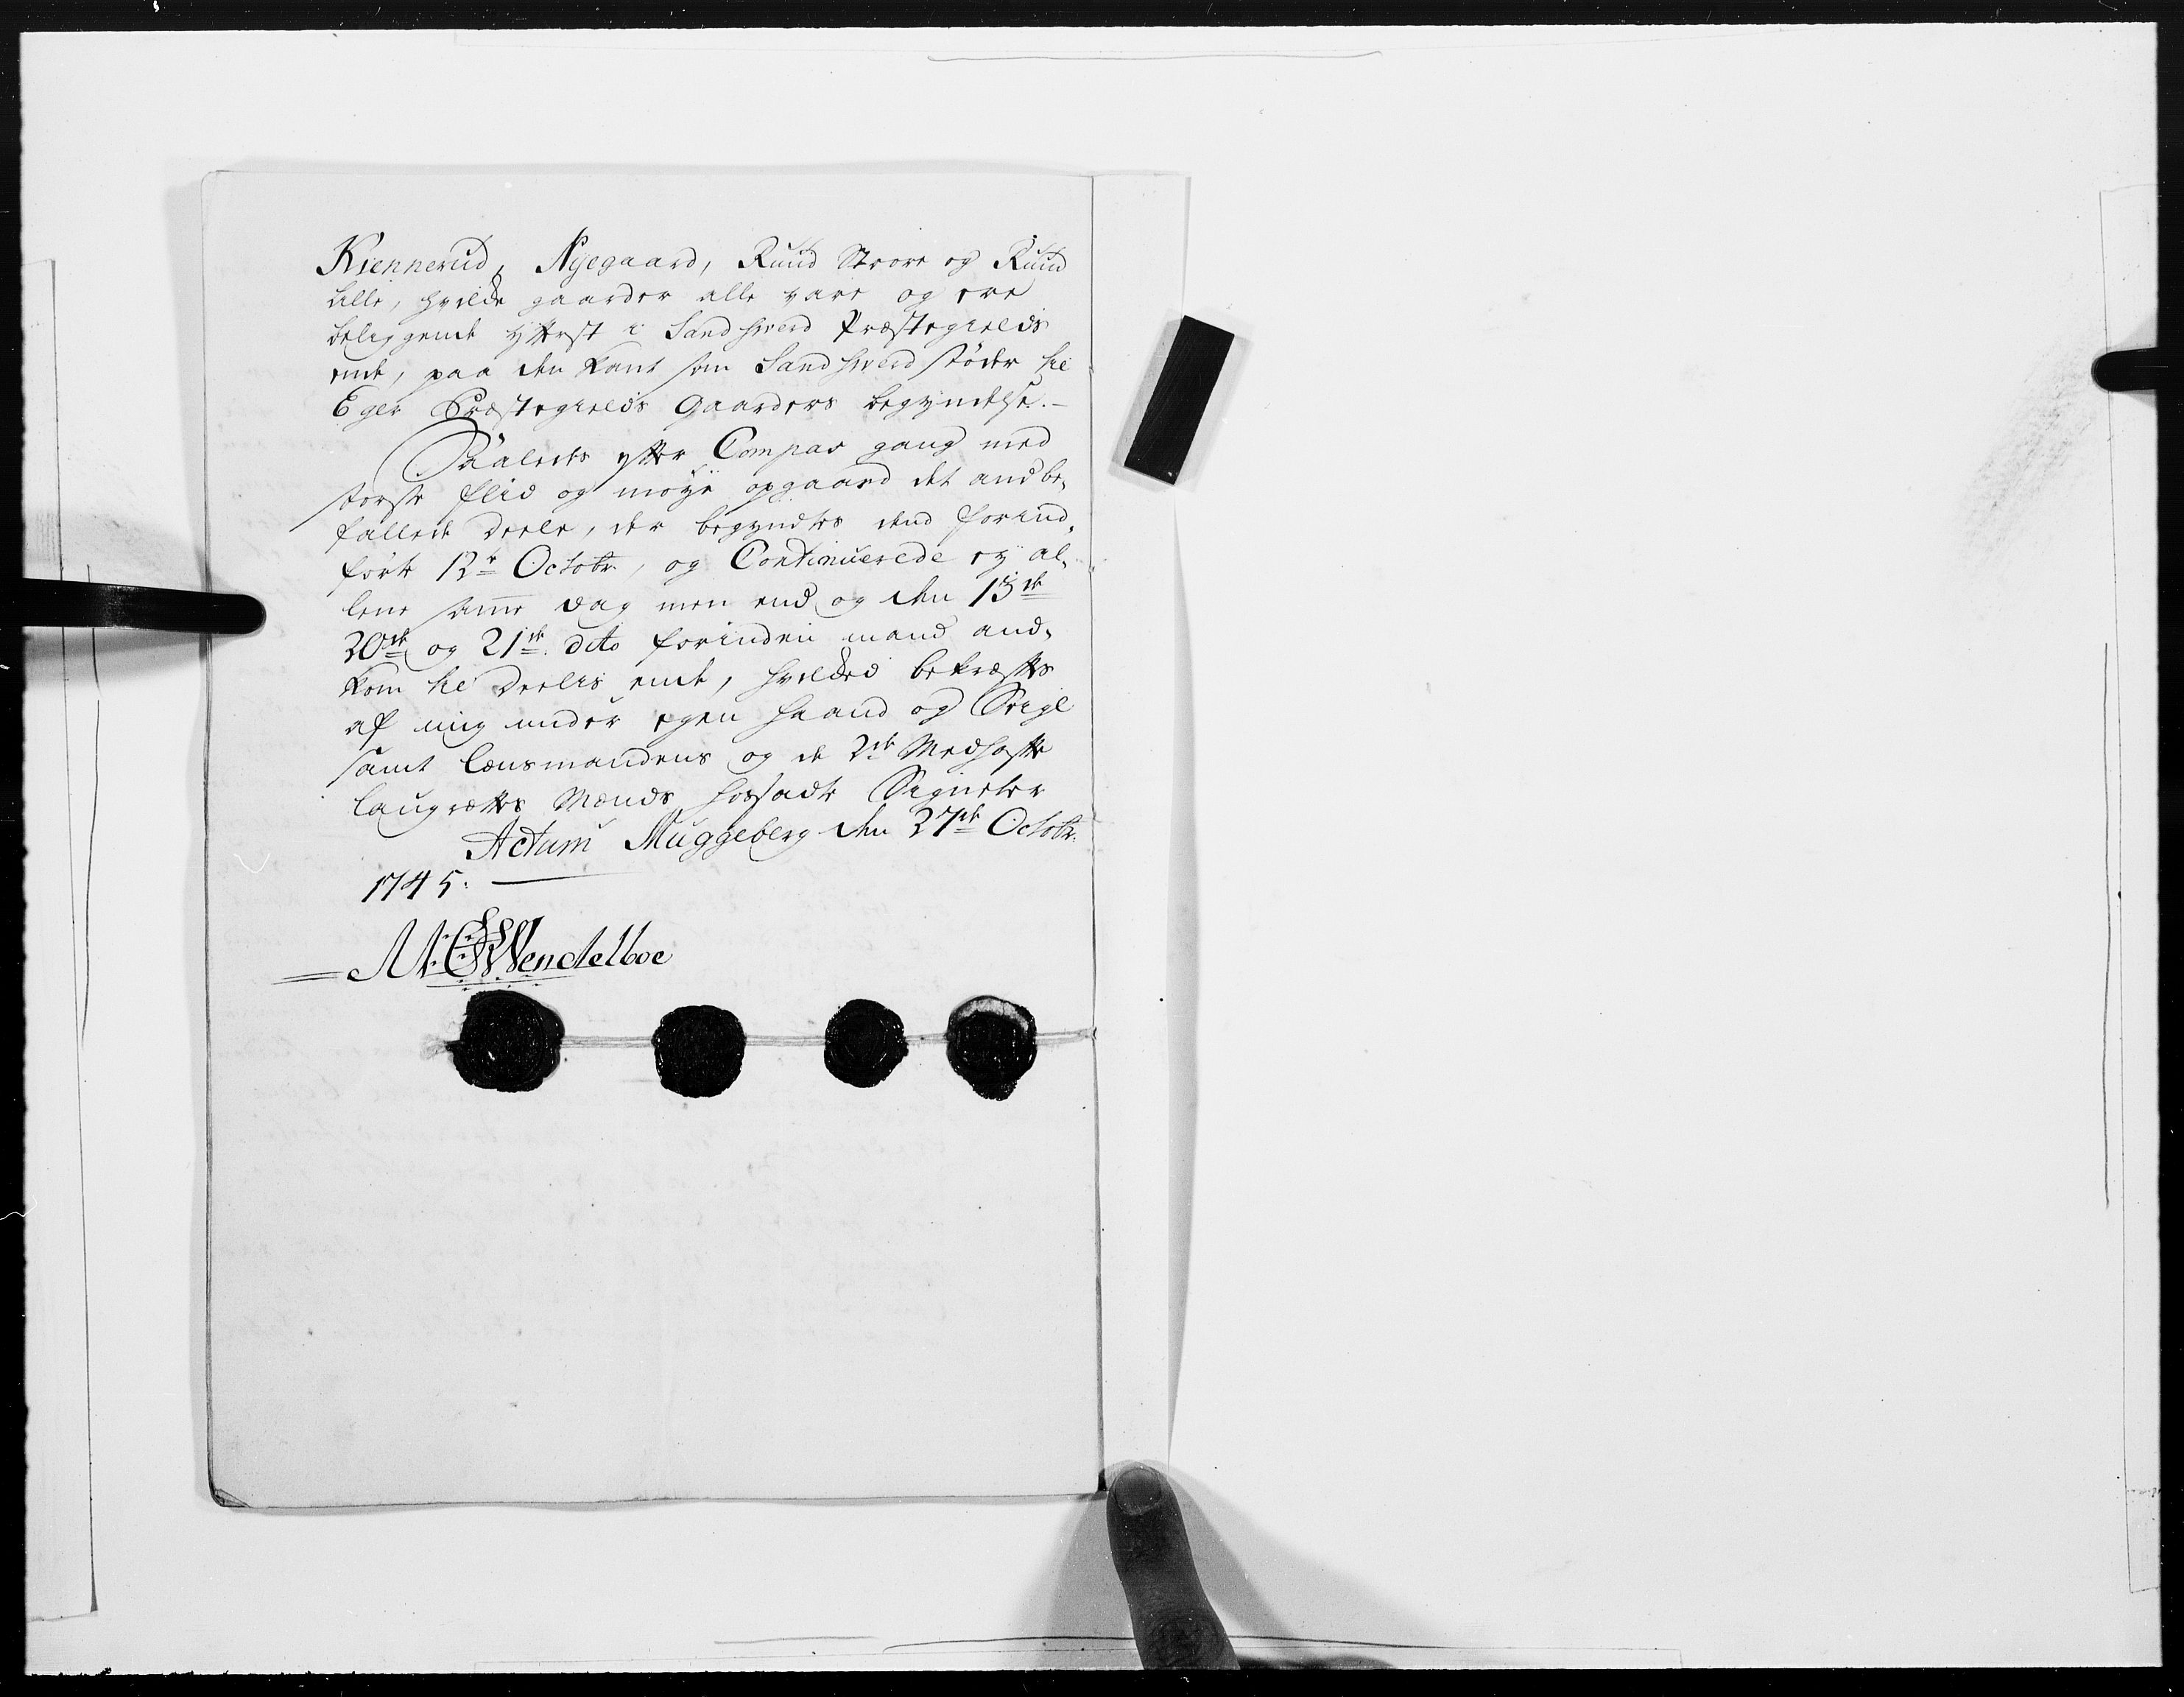 Kiennerud, Nyegaard, Ruud Store og Ruud
lille, hvilke gaarder alle vare og ere
beliggende yderst i Sandsverd Præstegields
ende, paa den kant som Sandsverd støder til
Eger Præstegields Gaarders begyndelse. —
Saaledes efter Compas gang med
største flid og møye opgaaed det anbe-
fallede deele, der begyndtes dend forind-
førte 12te Octobr, og Continuerede ey al-
lene same dag men end og den 13de
20de og 21de dito forinden mand and-
kom til deelis ende, hvilked bekræftes
af mig under egen haand og Seigl
samt lænsmandens og de 2de Medhafte
laugrættes Mænds hossadte Signeter
Actum Muggeberg den 27de Octobr.
1745. —
M. C. Wendelboe